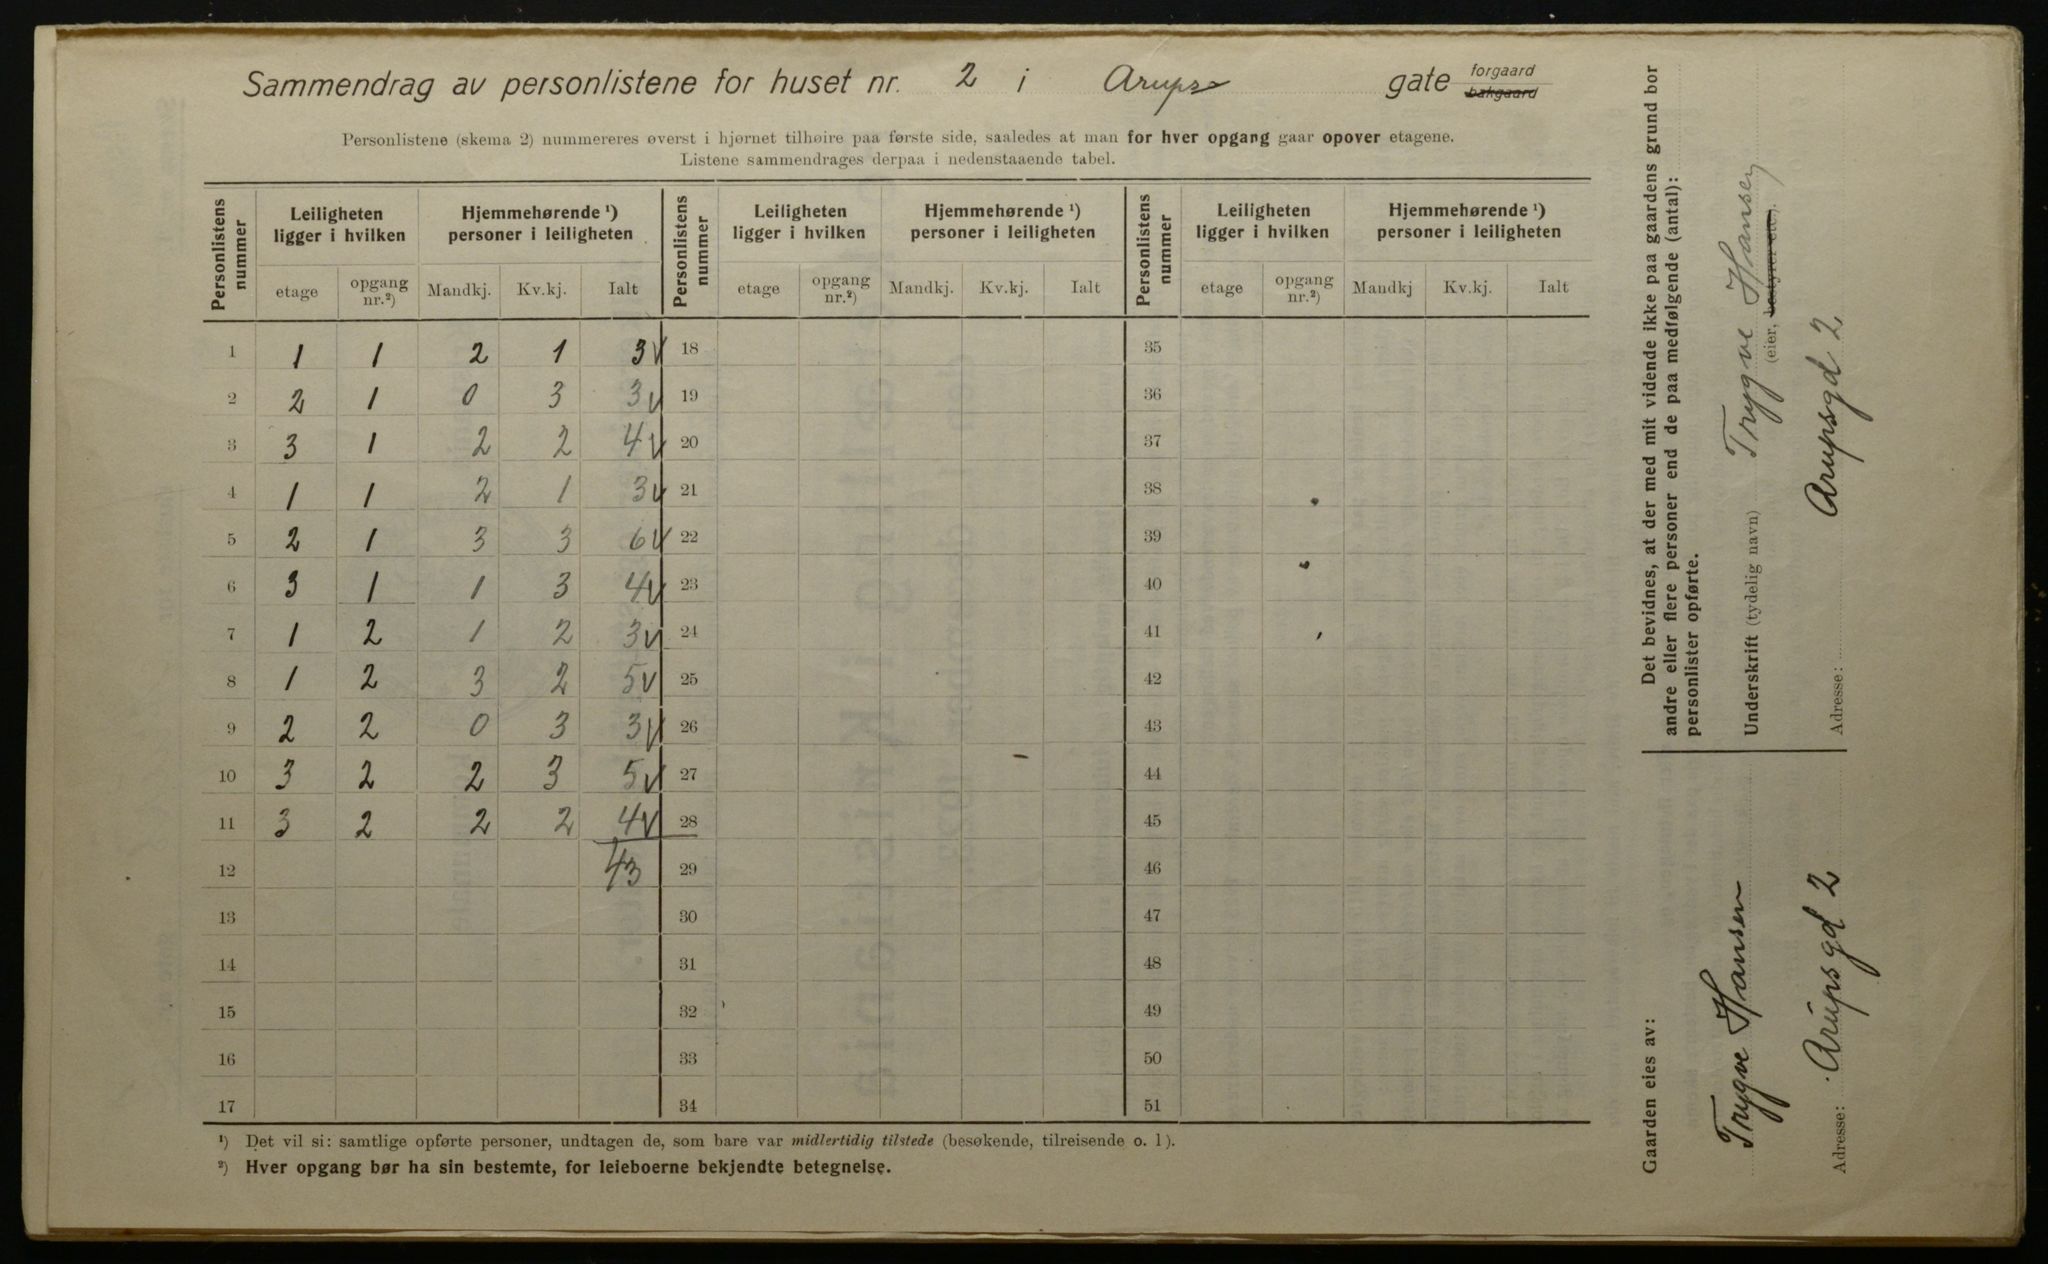 Sammendrag av personlistene for huset nr. 2 i Arups gate forgaard bakgaard
Personlistene (skema 2) nummereres øverst i hjørnet tilhøire paa første side, saaledes at man for hver opgang gaar opover etagene.
Listene sammendrages derpaa i nedenstaaende tabel.
Personlistens nummer Leiligheten ligger i hvilken Hjemmehørende ¹) personer i leiligheten Personlistens nummer Leiligheten ligger i hvilken Hjemmehørende ¹) personer i leiligheten Personlistens nummer Leiligheten ligger i hvilken Hjemmehørende ¹) personer i leiligheten
etage opgang nr.²) Mandkj. Kv.kj. Ialt etage opgang nr.²) Mandkj. Kv.kj. Ialt etage opgang nr.²) Mandkj Kv.kj. Ialt
1 1 1 2 1 3 V 18 35
2 2 1 0 3 3 V 19 36
3 3 1 2 2 4 V 20 37
4 1 1 2 1 3 V 21 38
5 2 1 3 3 6 V 22 39
6 3 1 1 3 4 V 23 40
7 1 2 1 2 3 V 24 41
8 1 2 3 2 5 V 25 42
9 2 2 0 3 3 V 26 43
10 3 2 2 3 5 V 27 44
11 3 2 2 2 4 V 28 45
12 43 29 46
13 30 47
14 31 48
15 32 49
16 33 50
17 34 51
¹) Det vil si: samtlige opførte personer, undtagen de, som bare var midlertidig tilstede (besøkende, tilreisende o. l).
²) Hver opgang bør ha sin bestemte, for leieboerne bekjendte betegnelse.
Det bevidnes, at der med mit vidende ikke paa gaardens grund bor
andre eller flere personer end de paa medfølgende (antal):
personlister opførte.
Underskrift (tydelig navn) Trygve Hansen
(eier, bestyrer etc.).
Adresse: Arupsgd 2
Gaarden eies av:
Trygve Hansen
Adresse: Arupsgd 2